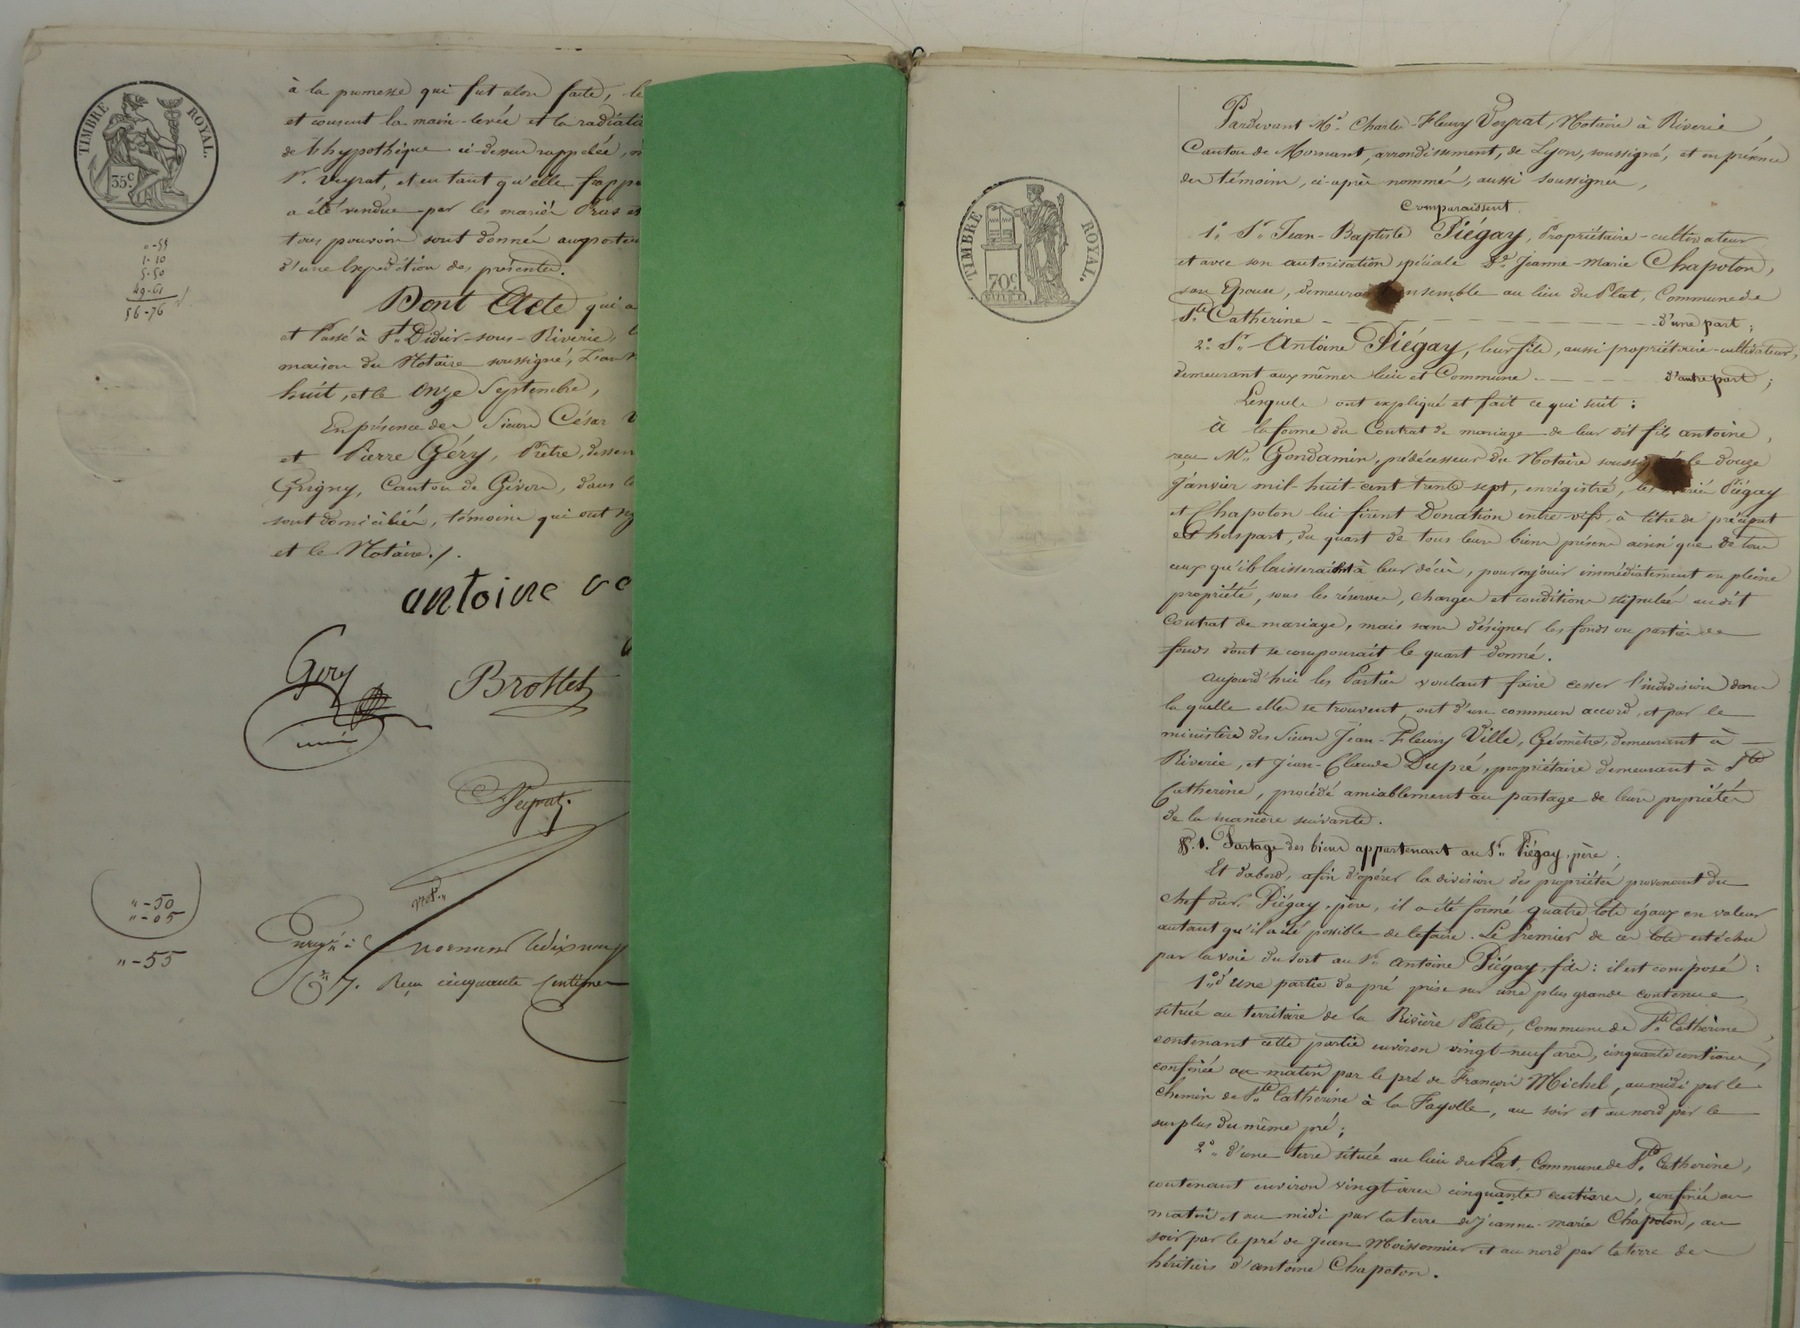 TIMBRE ROYAL.
35c
"-55
1-10
5-50
49-61
56-76
à la promesse qui fut alors faite, le
et consent la main-levée et la radiati
de l'hypothèque ci-dessus rappelée,
Sr. Veyrat, et en tant qu'elle frappe
a été vendue par les mariés Pras et
tous pouvoirs sont donnés au porteur
d'une Expédition des présentes.
Dont Acte qui a
et Passé à St. Didier-sous-Riverie,
maison du Notaire soussigné, L'an
huit, et le onze Septembre,
En présence des Sieurs César V
et Pierre Géry, Prêtre, desser
Grigny, Canton de Givors, dans
sont domiciliés, témoins qui ont sig
et le Notaire./.
antoine ve
Gery
Brottet
curé
Veyrat
not.
"-50
"-05
"-55
Enregé à Mornant le dix neuf
Co 7. Reçu cinquante centimes
TIMBRE ROYAL.
70c
Pardevant Me. Charles-Fleury Veyrat, Notaire à Riverie
Canton de Mornant, arrondissement, de Lyon, soussigné, et en présence
des témoins, ci-après nommés, aussi soussignés,
Comparaissent
1º. Sr. Jean-Baptiste Piégay, Propriétaire-cultivateur
et avec son autorisation spéciale De. Jeanne-Marie Chapoton,
son épouse, demeura nsemble au lieu du Plat, Commune de
Ste Catherine - d'une part;
2º. Sr. Antoine Piégay, leur fils, aussi propriétaire-cultivateur,
demeurant aux mêmes lieu et Commune - d'autre part;
Lesquels ont expliqué et fait ce qui suit:
À la forme du Contrat de mariage de leur dit fils antoine,
reçu Me. Gondamin, prédécesseur du Notaire soussigné le douze
Janvier mil-huit-cent-trente-sept, enrégistré, les mariés Piégay
et Chapoton lui firent Donation entre-vifs, à titre de préciput
et hors part, du quart de tous leurs biens présens ainsi que de tous
ceux qu'ils laisseraient à leur décès, pour en jouir immédiatement en pleine
propriété, sous les réserves, charges et conditions stipulées audit
Contrat de mariage, mais sans désigner les fonds ou parties de
fonds dont se composerait le quart donné.
Aujourd'hui les Parties voulant faire cesser l'indivision dans
la quelle elles se trouvent, ont d'un commun accord, et par le
ministère des Sieurs Jean-Fleury Ville, Géomètre, demeurant à
Riverie, et Jean-Claude Dupré, propriétaire demeurant à Ste
Catherine, procédé amiablement au partage de leurs propriétés
de la manière suivante.
§. 1. Partage des biens appartenant au Sr. Piégay, père.
Et d'abord, afin d'opérer la division des propriétés provenant du
chef du Sr. Piégay, père, il a été formé quatre lots égaux en valeur
autant qu'il a été possible de le faire. Le Premier de ces lots est échu
par la voie du sort au Sr. Antoine Piégay, fils: il est composé:
1º. d'une partie de pré prise sur une plus grande contenue,
située au territoire de la Rivière Plate, Commune de Ste Catherine
contenant cette partie environ vingt-neuf ares, cinquante centiares,
confinée au matin par le pré de François Michel, au midi par le
chemin de Ste Catherine à la Fayolle, au soir et au nord par le
surplus du même pré;
2º. d'une terre située au lieu du Plat, Commune de Ste Catherine,
contenant environ vingt ares cinquante centiares, confinée au
matin et au midi par la terre de Jeanne-Marie Chapoton, au
soir par le pré de Jean Moissonnier et au nord par la terre des
héritiers d'antoine Chapoton.